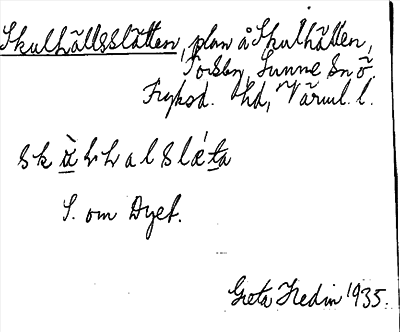 Skulhällsslätten, plan å Skulhällen,
Torsby, Sunne sn ö.
Fryksd. hd, Värml. l.
sk ù l h a l s l ǽ t a
S. om Dyet.
Greta Hedin 1935.